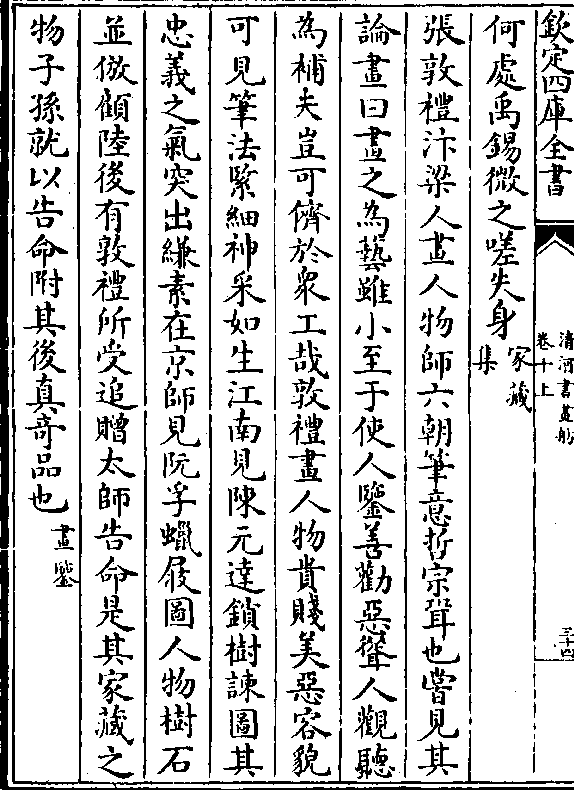 欽定四庫全書
清河書畫舫
卷十上
三十四
何處禹錫微之嗟失身家藏集
張敦禮汴梁人畫人物師六朝筆意哲宗壻也嘗見其
論畫曰畫之為藝雖小至于使人鑒善勸惡聳人觀聽
為補夫豈可儕於衆工哉敦禮畫人物貴賤美惡容貌
可見筆法緊細神采如生江南見陳元達鎖樹諫圖其
忠義之氣突出縑素在京師見阮孚蠟屐圖人物樹石
並倣顧陸後有敦禮所受追贈太師告命是其家藏之
物子孫就以告命附其後真奇品也畫鑒